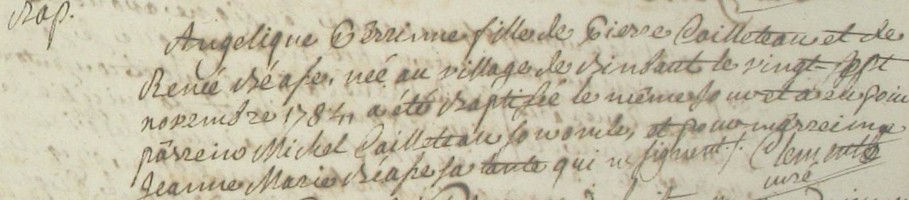 Bap.
Angelique Perrinne fille de Pierre Cailleteau et de
Renée Béasse, née au village de le vingt sept
novembre 1784, a été Baptisée le même jour et a eu pour
parrein Michel Cailleteau son oncle, et pour marreinne
Jeanne Marie Béasse sa tante qui ne signent.
curé